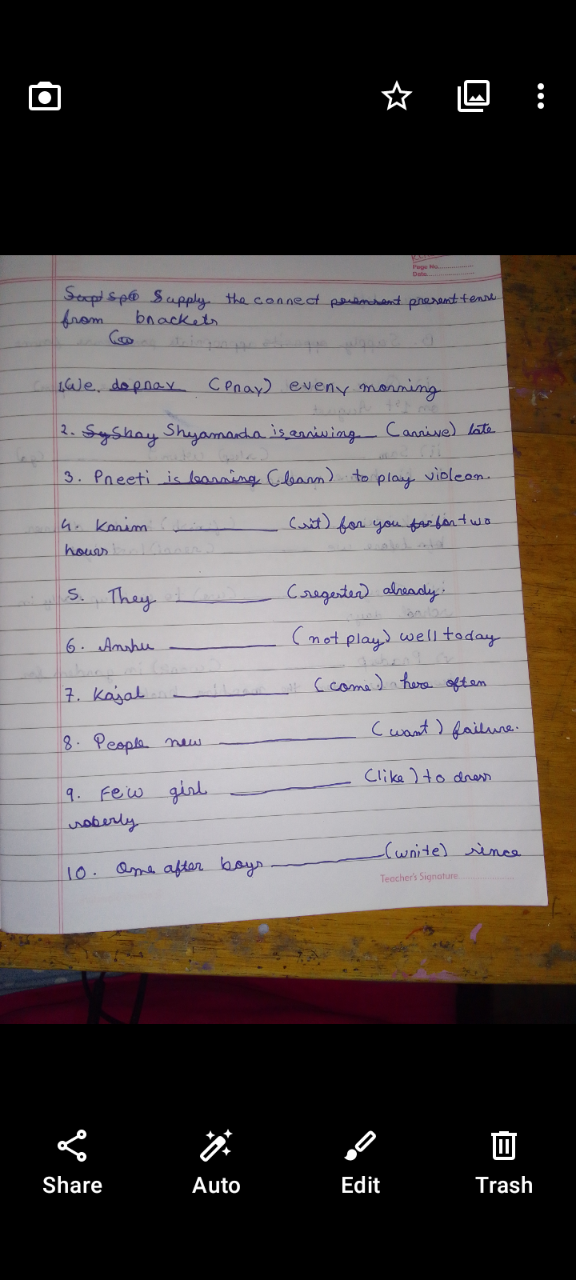 Page No.
Date
Supply the connect present tense
from brackets
1. We do pray (Pray) every morning
2. Shyamanta is arriving (arrive) late
3. Preeti is learning (learn) to play violeon.
4. Karim (sit) for you for two
hours
5. They (regester) already.
6. Anshu (not play) well today
7. Kajal (come) here often
8. People new (want) failure.
9. Few girl (like) to dress
soberly
10. One after boys (write) since
Teacher's Signature
Share Auto Edit Trash